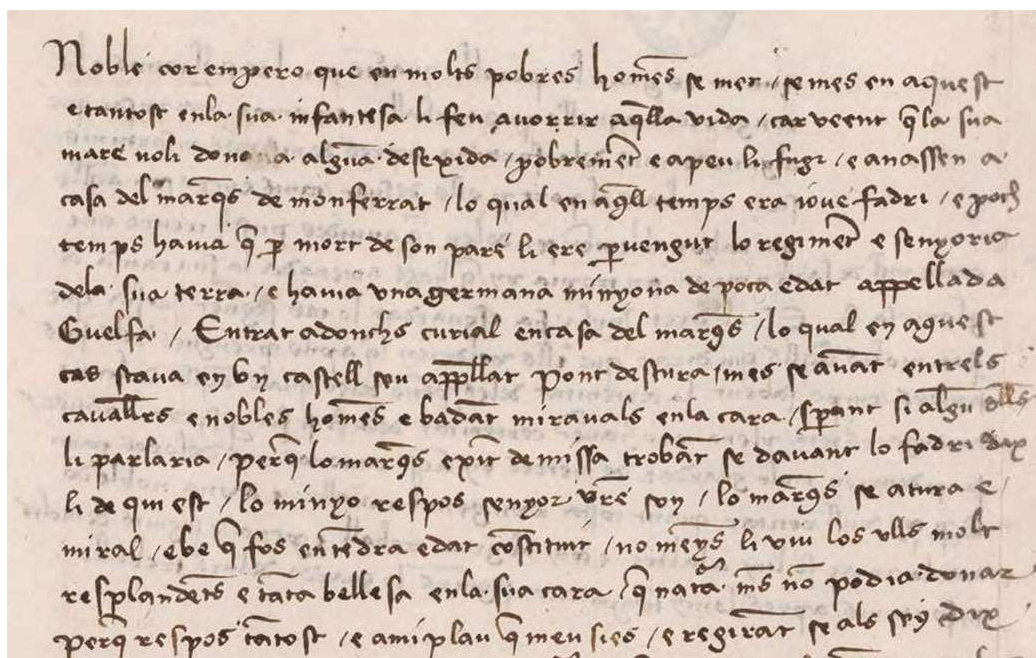 Noble cor empero que en molts pobres homẽs se met / se mes en aquest
e tantost en la sua infantesa li feu avorrir aq̃lla vida / car veent q̃ la sua
mare no li donava alguña desexida / pobremẽt e a peu li fugi / e anassen a
casa del marq̃s de monferrat / lo qual en aq̃ll temps era iove fadri / e poch
temps havia q̃ p̱ mort de son pare li ere p̱vengut lo regimẽt e senyoria
dela sua terra / e havia una germana minyona de poca edat appellada
Guelfa / Entrat adonchs curial en casa del marq̃s / lo qual en aquest
cas stava en un castell seu app̱llat Pont destura / mes se avãt entrels
cavall̃rs e nobles homẽs e badãt miravals en la cara / sp̱ant si algu dells
li parlaria / perq̃ lo marq̃s exĩt de missa trobãt se davant lo fadri dix
li de qui est / lo minyo respos senyor vr̃e son / lo marq̃s se atura e
miral / e be q̃ fos en tẽdra edat cõstituit / no meỹs li viu los ulls molt
resplandẽts e tãta bellesa en la sua cara / q̃ natã mẽs nõ podia donar
perq̃ respos tãtost / e a mi plau q̃ meu sies / e regirãt se als seus dix